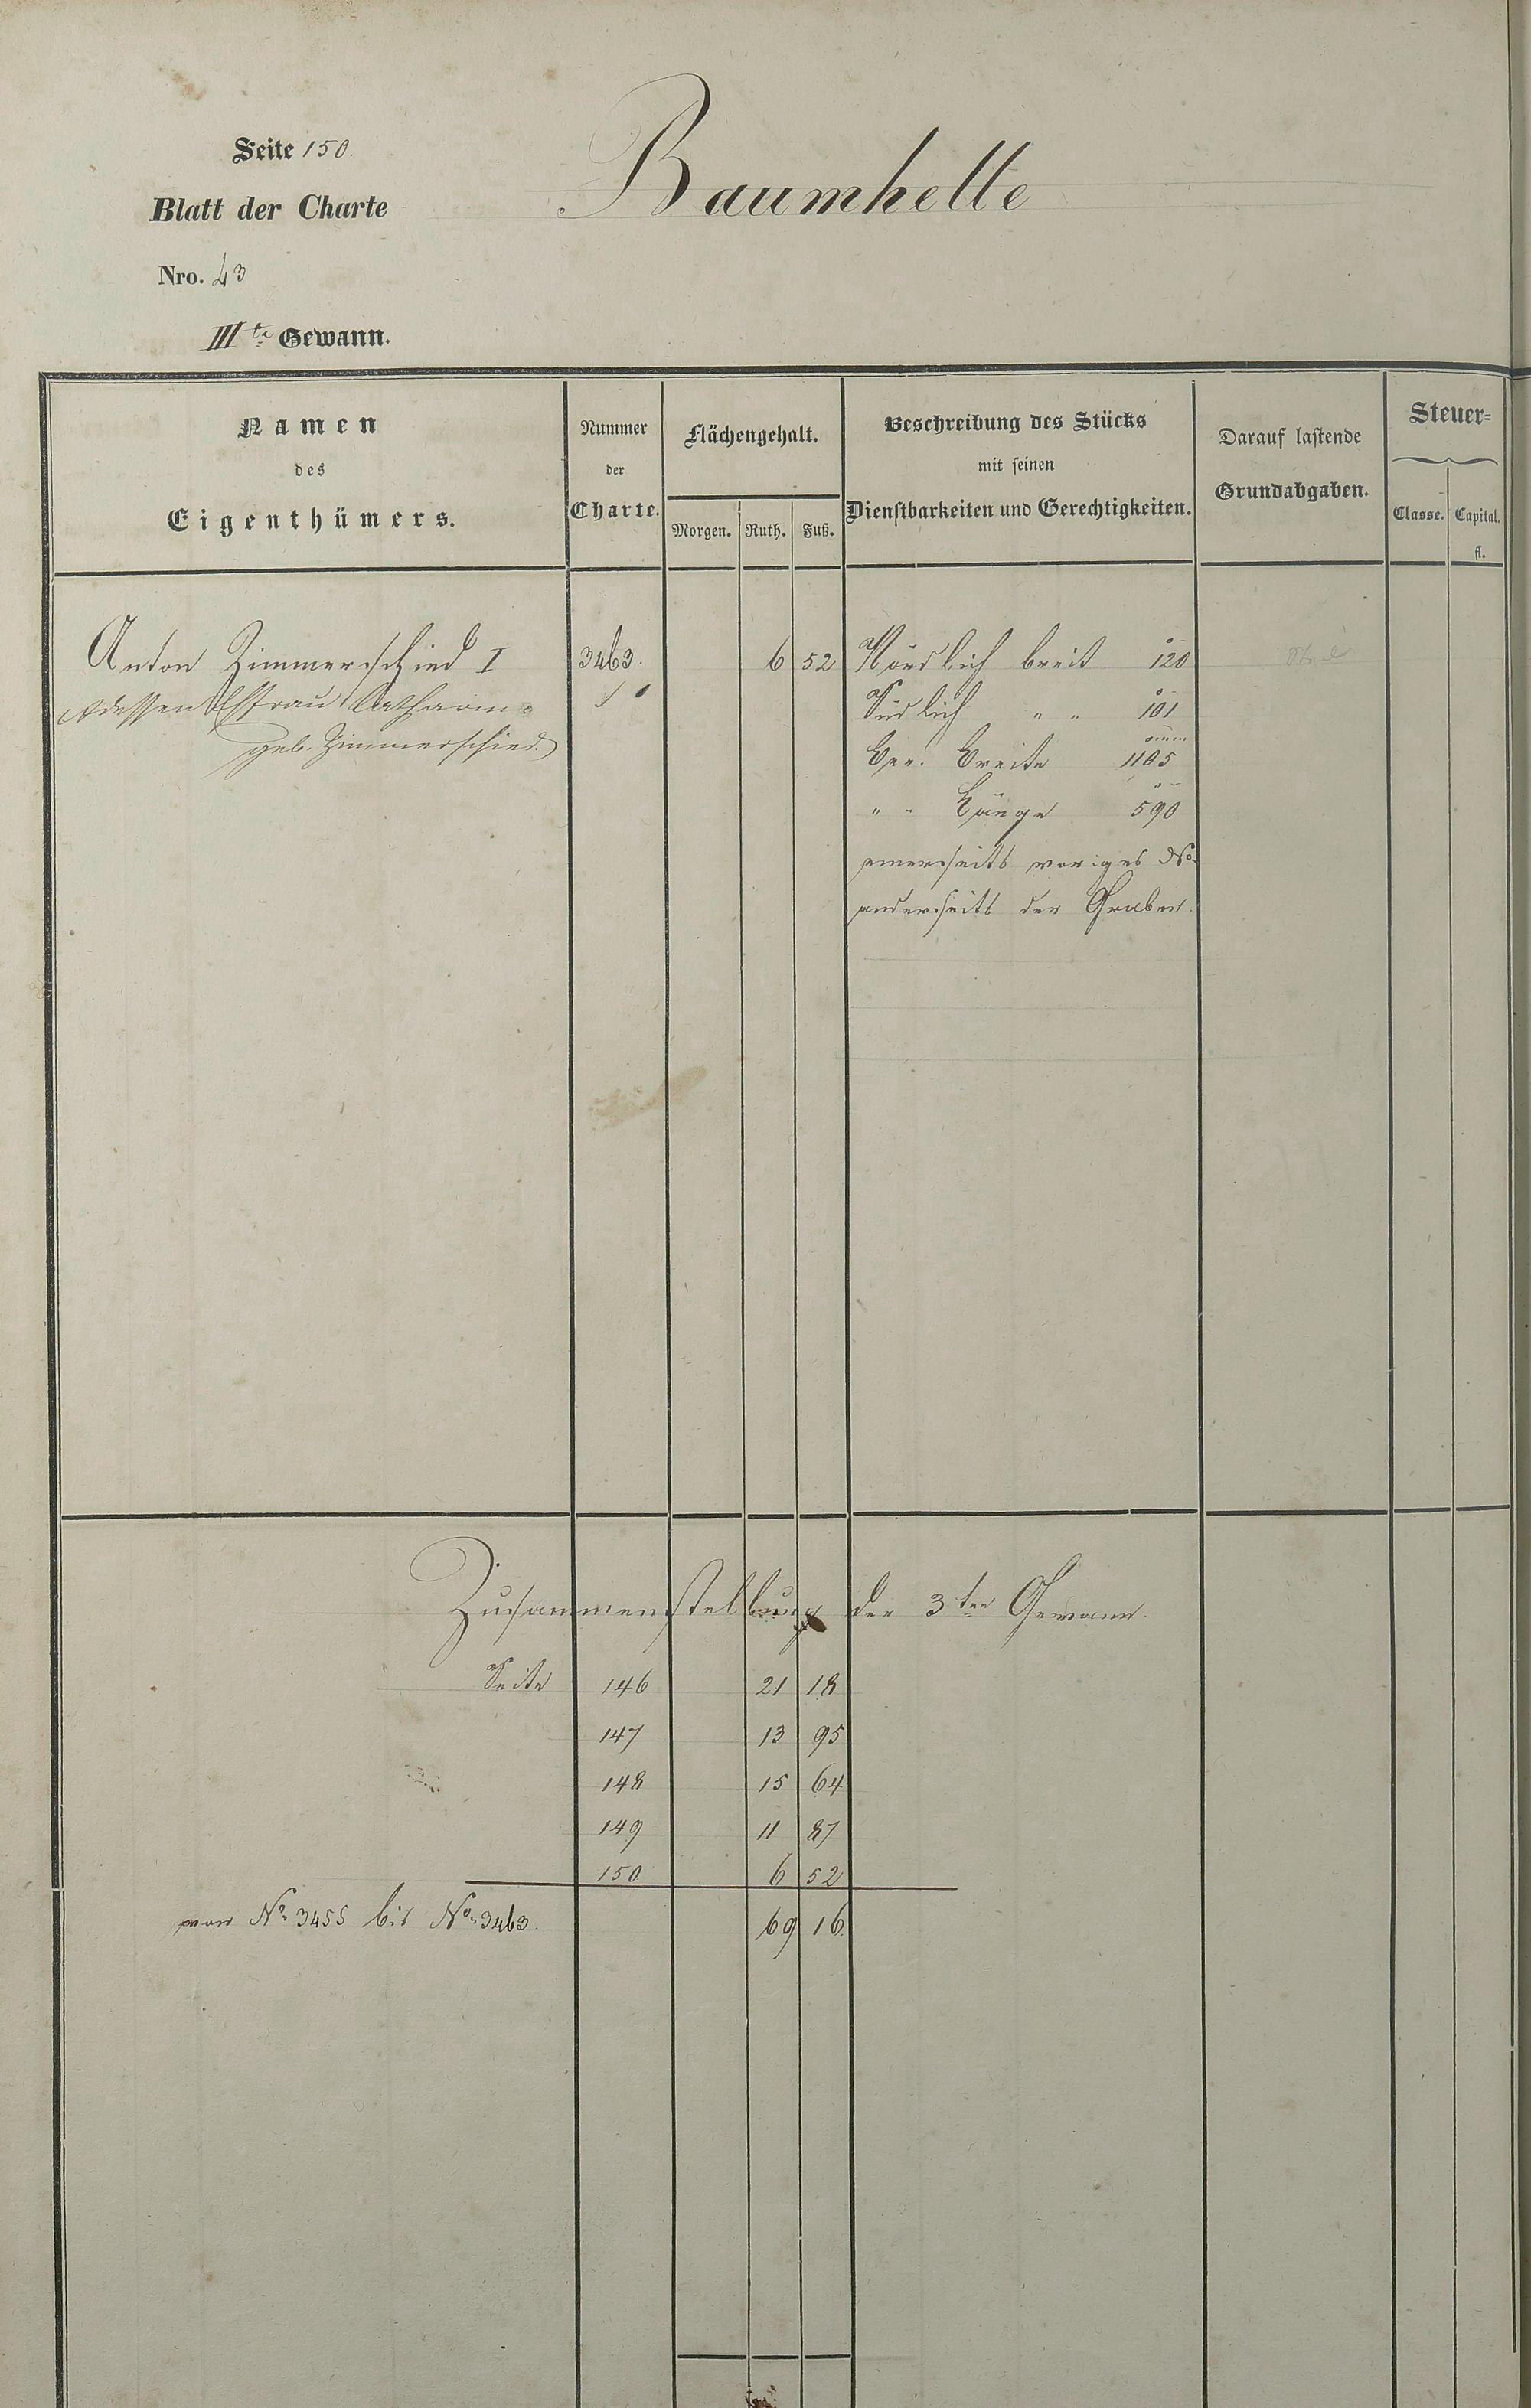 Seite 150.
Baumhelle
Blatt der Charte
Nro. 43
III te Gewann.
Namen
des
Eigenthümers.
Nummer
der
Charte.
Flächengehalt.
Morgen. Ruth. Fuß.
Beschreibung des Stücks
mit seinen
Dienstbarkeiten und Gerechtigkeiten.
Darauf lastende
Grundabgaben.
Steuer=
Classe. Capital.
fl.
Anton Zimmerschied I 3463. 6 52 Nördlich breit 120
dessen Ehfrau Catharina
geb. Zimmerschied.
Südlich " " 101
Ber. Breite 1105
" " Länge 590
einerseits voriges No.
anderseits der Graben.
Zusammenstellung der 3ten Gewann.
Seite 146 21 18
147 13 95
148 15 64
149 11 87
150 6 52
von No. 3455 bis No. 3463. 69 16.